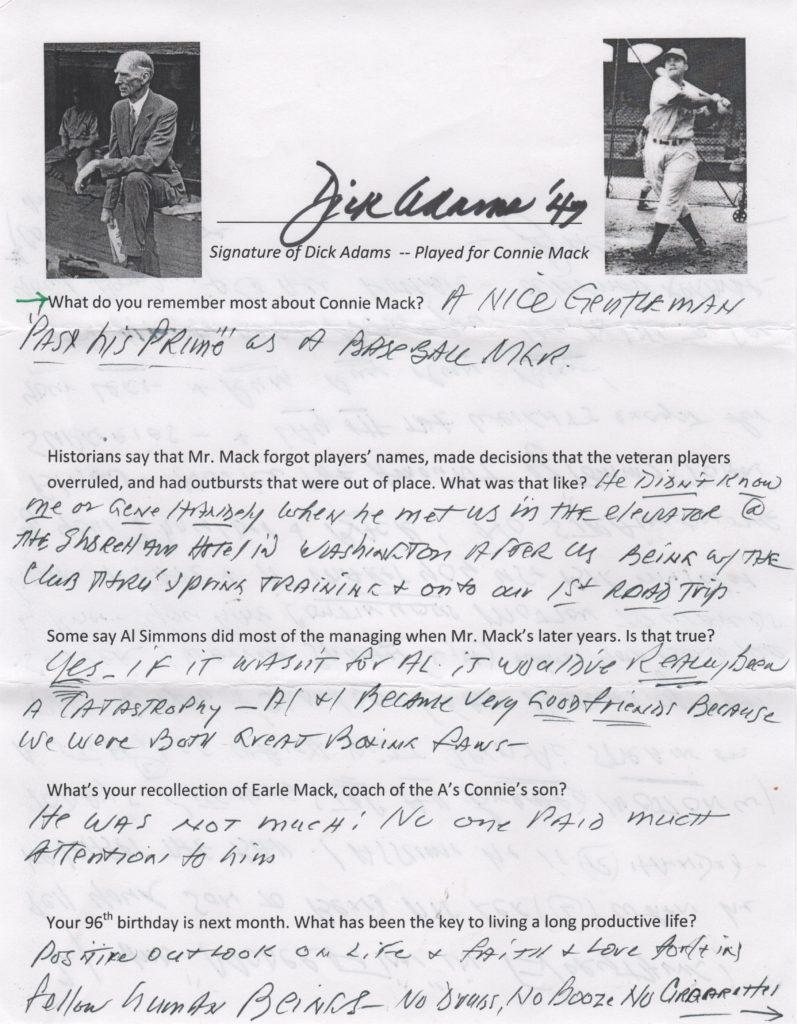 Dick Adams '47
Signature of Dick Adams -- Played for Connie Mack
What do you remember most about Connie Mack? A NICE GENTLEMAN
"PAST his PRIME" as A BASEBALL MGR.
Historians say that Mr. Mack forgot players' names, made decisions that the veteran players
overruled, and had outbursts that were out of place. What was that like? He DIDN'T KNOW
me or GENE HANDLEY when he met us in THE elevator @
THE SHOREHAM HOTEL in WASHINGTON AFTER US BEING w/ THE
CLUB THRU' SPRING TRAINING + onto our 1st ROAD TRIP
Some say Al Simmons did most of the managing when Mr. Mack's later years. Is that true?
Yes - IF iT WASNT for AL. iT WOULD'VE REALLY BEEN
A CATASTROPHY — Al + I BECAME Very GOOD friends BECAUSE
WE WERE BOTH GREAT BOXING FANS—
What's your recollection of Earle Mack, coach of the A's Connie's son?
He WAS NOT much! No one PAID MUCH
ATTENTION to him
Your 96th birthday is next month. What has been the key to living a long productive life?
POSITIVE OUTLOOK ON LIFE & FAITH & LOVE
fellow human BEINGS— NO DRUGS, NO BOOZE NO CIGARETTES